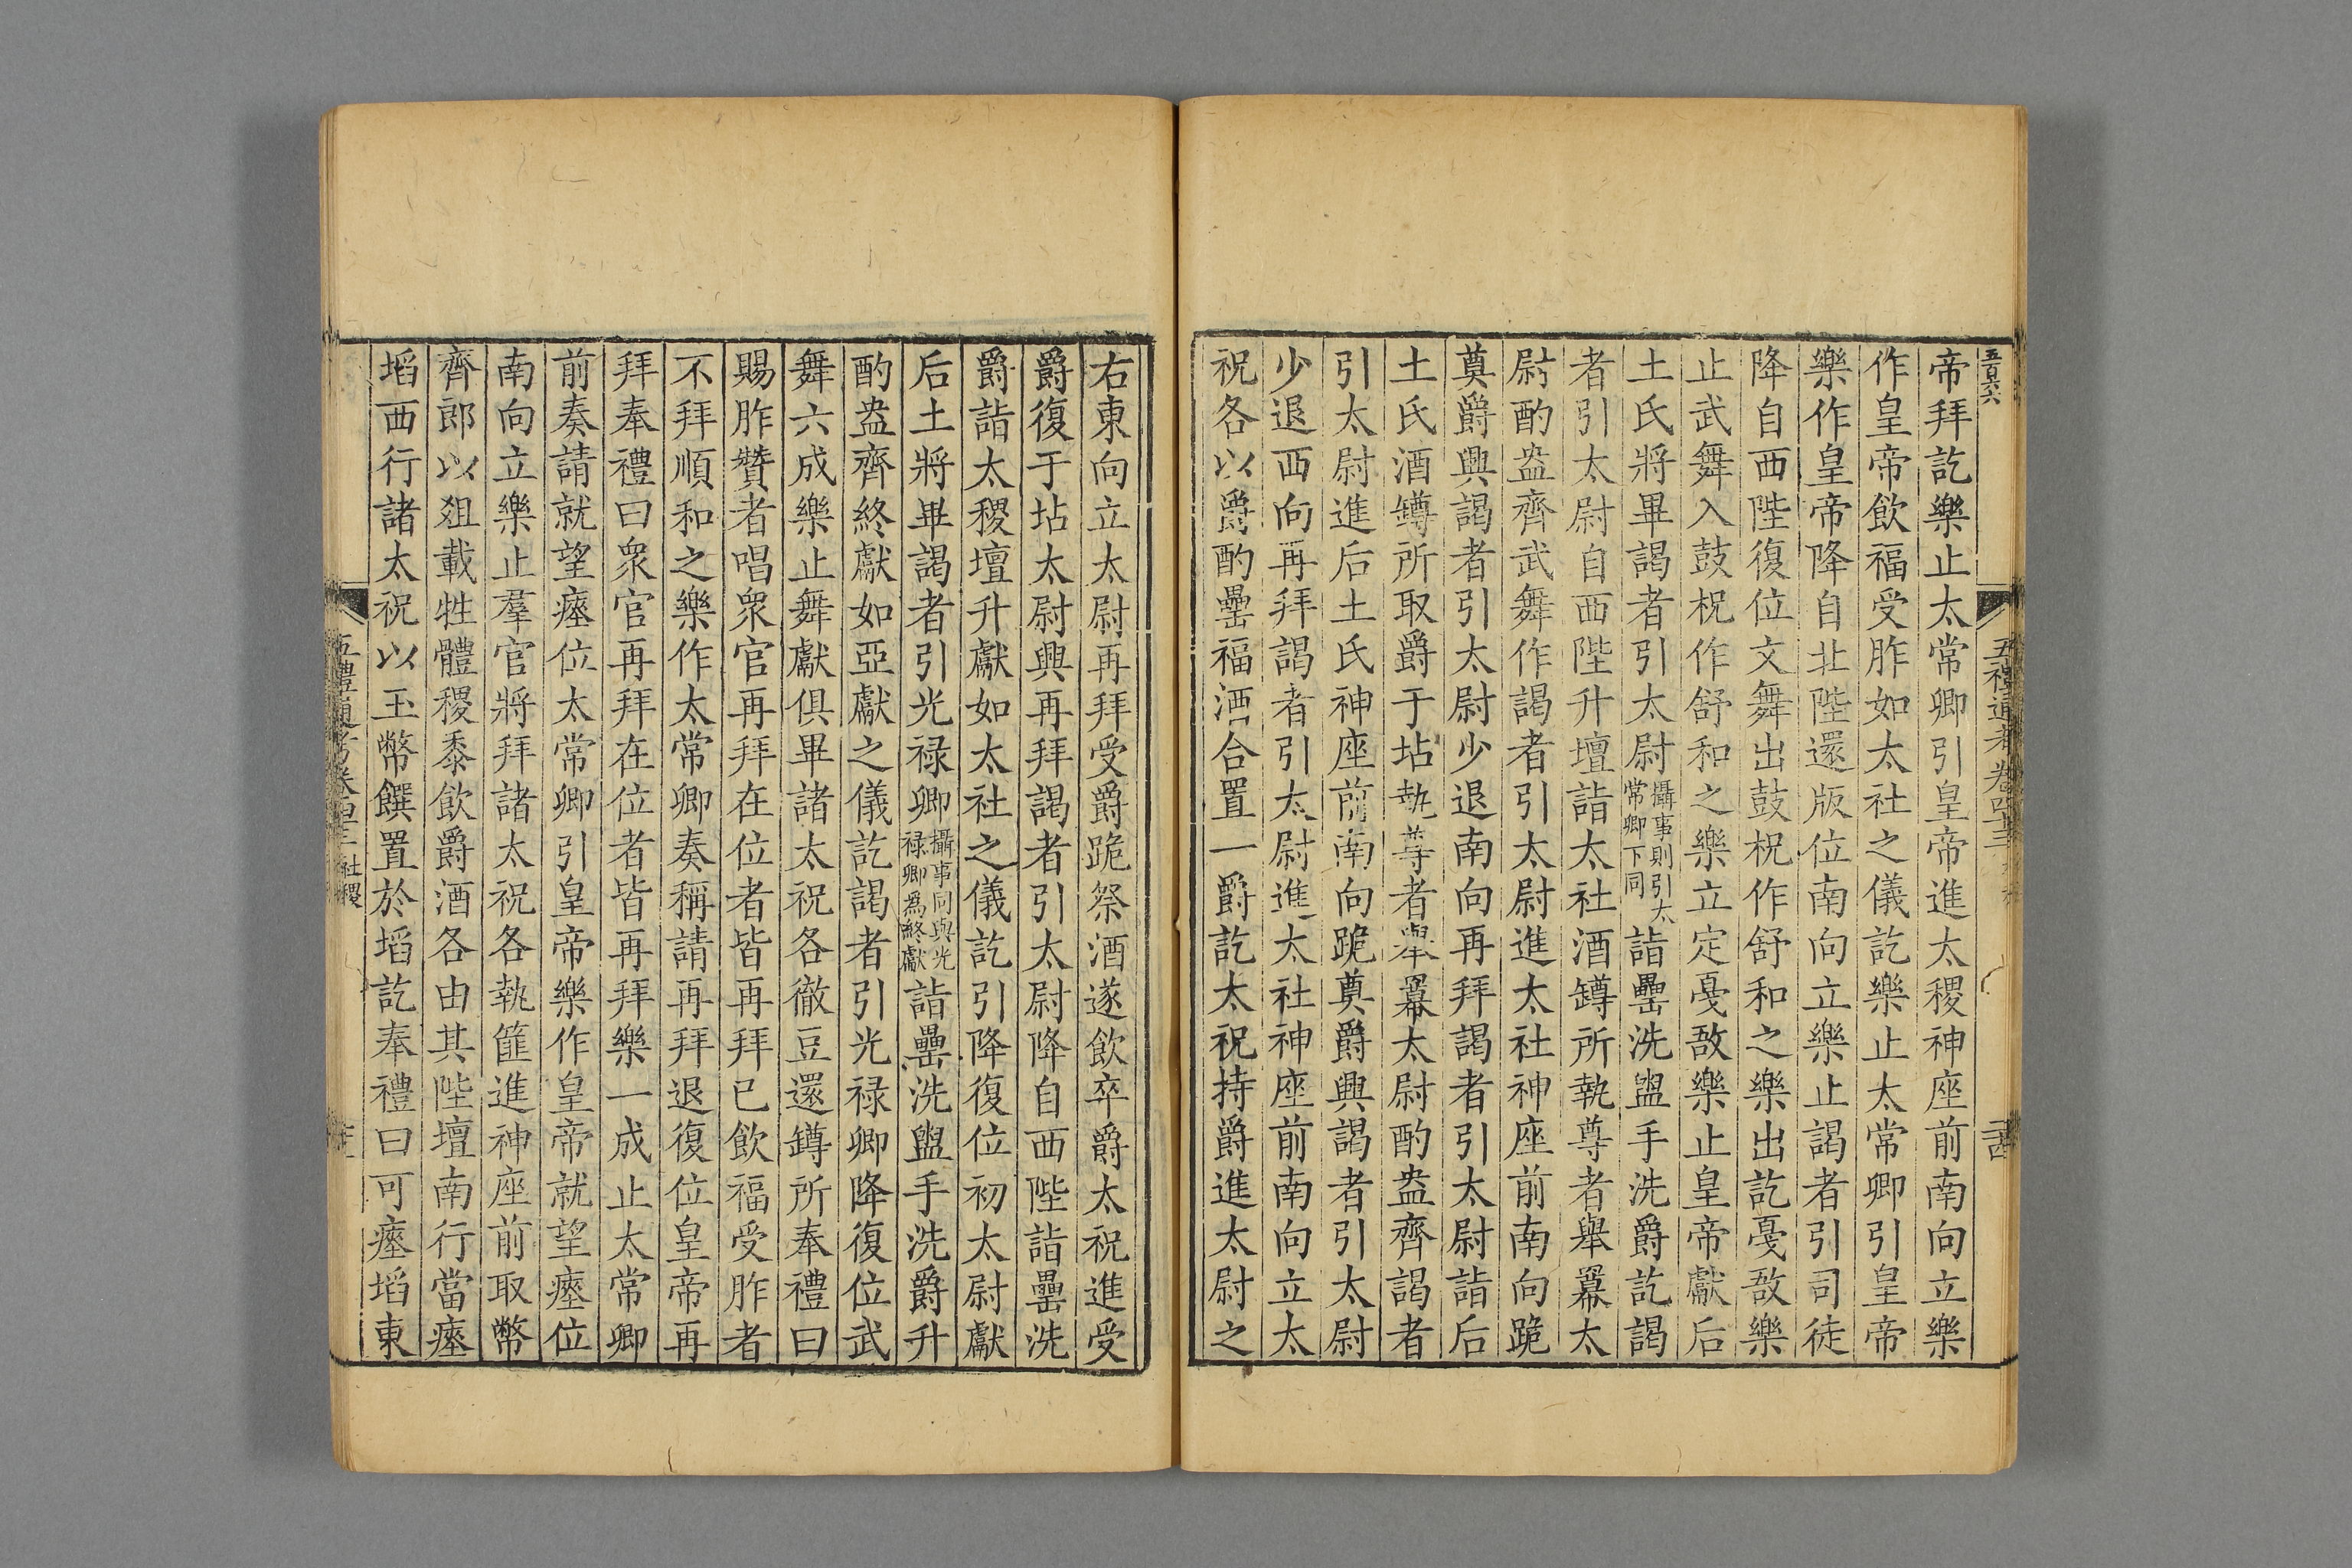 五百六六
五禮通考卷四十三
帝拜訖樂止太常卿引皇帝進太稷神座前南向立樂
作皇帝飲福受胙如太社之儀訖樂止太常卿引皇帝
樂作皇帝降自北陛還版位南向立樂止謁者引司徒
降自西陛復位文舞出鼓柷作舒和之樂出訖戞敔樂
止武舞入鼓柷作舒和之樂立定戞敔樂止皇帝獻后
土氏將畢謁者引太尉攝事則引太常卿下同詣罍洗盥手洗爵訖謁
者引太尉自西陛升壇詣太社酒罇所執尊者舉羃太
尉酌盎齊武舞作謁者引太尉進太社神座前南向跪
奠爵興謁者引太尉少退南向再拜謁者引太尉詣后
土氏酒罇所取爵于坫執尊者舉羃太尉酌盎齊謁者
引太尉進后土氏神座前南向跪奠爵興謁者引太尉
少退西向再拜謁者引太尉進太社神座前南向立太
祝各以爵酌罍福酒合置一爵訖太祝持爵進太尉之
右東向立太尉再拜受爵跪祭酒遂飲卒爵太祝進受
爵復于坫太尉興再拜謁者引太尉降自西陛詣罍洗
爵詣太稷壇升獻如太社之儀訖引降復位初太尉獻
后土將畢謁者引光祿卿攝事同與光祿卿為終獻詣罍洗盥手洗爵升
酌盎齊終獻如亞獻之儀訖謁者引光祿卿降復位武
舞六成樂止舞獻俱畢諸太祝各徹豆還罇所奉禮曰
賜胙贊者唱眾官再拜在位者皆再拜已飲福受胙者
不拜順和之樂作太常卿奏稱請再拜退復位皇帝再
拜奉禮曰眾官再拜在位者皆再拜樂一成止太常卿
前奏請就望瘞位太常卿引皇帝樂作皇帝就望瘞位
南向立樂止羣官將拜諸太祝各執篚進神座前取幣
齊郎以俎載牲體稷黍飲爵酒各由其陛壇南行當瘞
埳西行諸太祝以玉幣饌置於埳訖奉禮曰可瘞埳東
五禮通考卷四十三 社稷